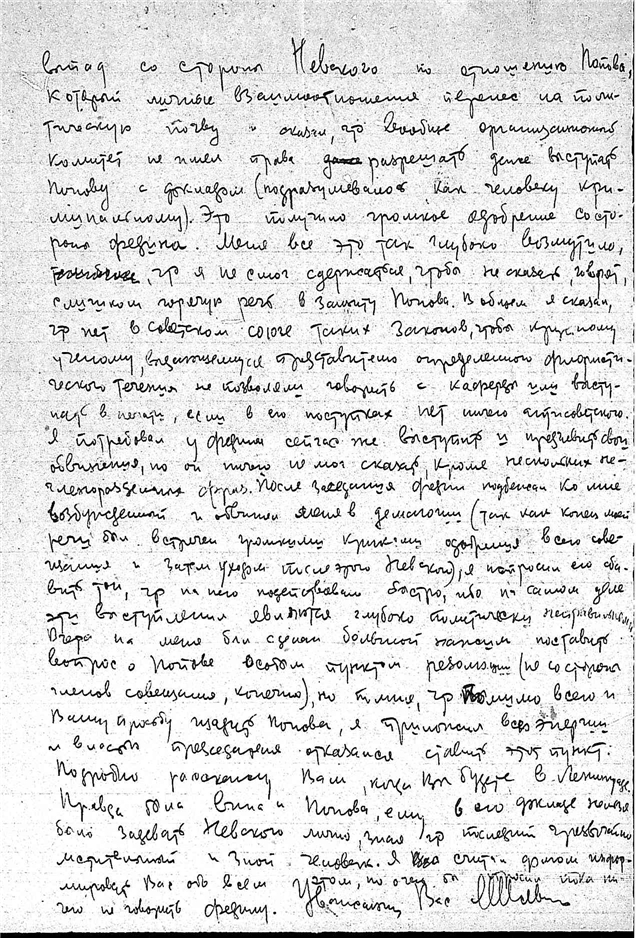 выпад со стороны Невского по отношению Попова,
который личные взаимоотношения перенес на поли-
тическую почву и сказал, что вообще организационный
комитет не имел права разрешать даже выступать
Попову с докладом (подразумевалось как человеку кри-
минальному). Это получило громкое одобрение со сто-
роны Федина. Меня все это так глубоко возмутило,
что я не смог сдержаться, чтобы не сказать, говорят,
слишком горячую речь в защиту Попова. В общем я сказал,
что нет в советском союзе таких законов, чтобы крупному
ученому, выдающемуся представителю определенного флористи-
ческого течения не позволяли говорить с кафедры или высту-
пать в печати, если в его поступках нет ничего антисоветского.
Я потребовал у Федина сейчас же выступить и предъявить свои
обвинения, но он ничего не мог сказать, кроме нескольких не-
членораздельных фраз. После заседания Федин подбежал ко мне
возбужденный и обвинил меня в демагогии (так как конец моей
речи был встречен громкими криками одобрения всего сове-
щания и затем уходом после этого Невского), я попросил его сба-
вить тон, что на него подействовало быстро, ибо на самом деле
эти выступления являются глубоко политически неправильными.
Вчера на меня был сделан большой нажим поставить
вопрос о Попове особым пунктом резолюции (не со стороны
членов совещания, конечно), но помня, что помимо всего и
Вашу просьбу щадить Попова, я приложил всю энергию
и властью председателя отказался ставить этот пункт.
Подробно расскажу Вам, когда Вы будете в Ленинграде.
Правда была вина и Попова, ему в его докладе нельзя
было задевать Невского лично, зная что последний чрезвычайно
мстительный и злой человек. Я считал долгом инфор-
мировать Вас обо всем этом, но очень бы просил пока ни-
чего не говорить Федину. Уважающий Вас